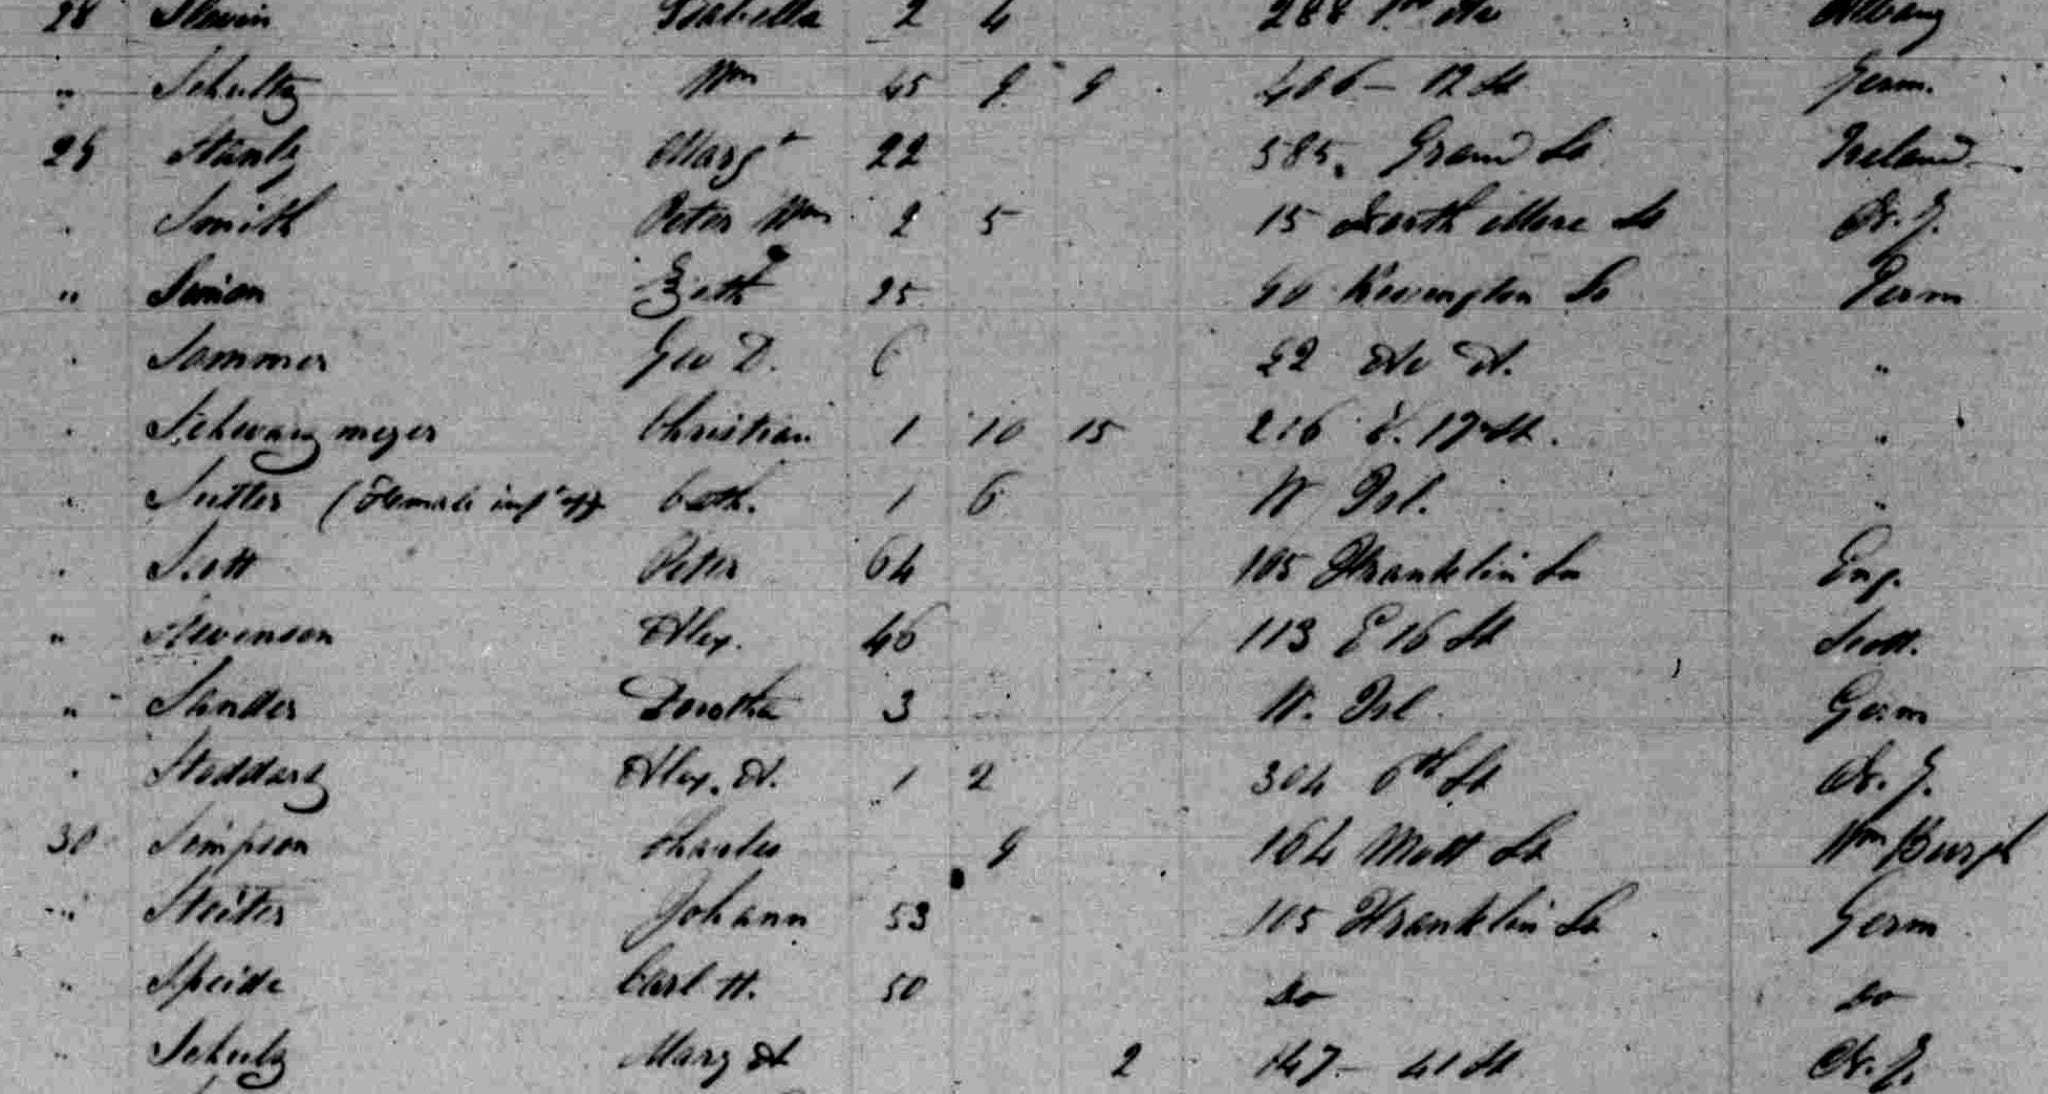 28 Slevin Isabella 2 4 288 1st Av Albany
" Schultz Wm 45 9 9 406 - 12 St Germ.
29 Stantz Margt 22 585 Grand St Ireland
" Smith Peter Wm 2 5 15 North Moore St N. Y.
" Simon Ezbth 25 60 Rivington St Germ
" Sommer Geo D. 6 22 Av A. "
" Schwarzmeyer Christian 1 10 15 216 E. 17 St. "
" Sutter (Female Cath. 1 6 W Isl. "
" Scott Peter 64 105 Franklin St Eng.
" Stevenson Alex. 46 113 E 16 St Scott.
" Sander Dorothea 3 W. Isl Germ
" Stoddard Alex. A. 1 2 304 6th St N. Y.
30 Simpson Charles 9 164 Mott St Wm Burgh
" Steiter Johann 53 105 Franklin St Germ
" Speide Carl H. 50 do do
" Schulz Mary A 2 147 - 41 St N. Y.